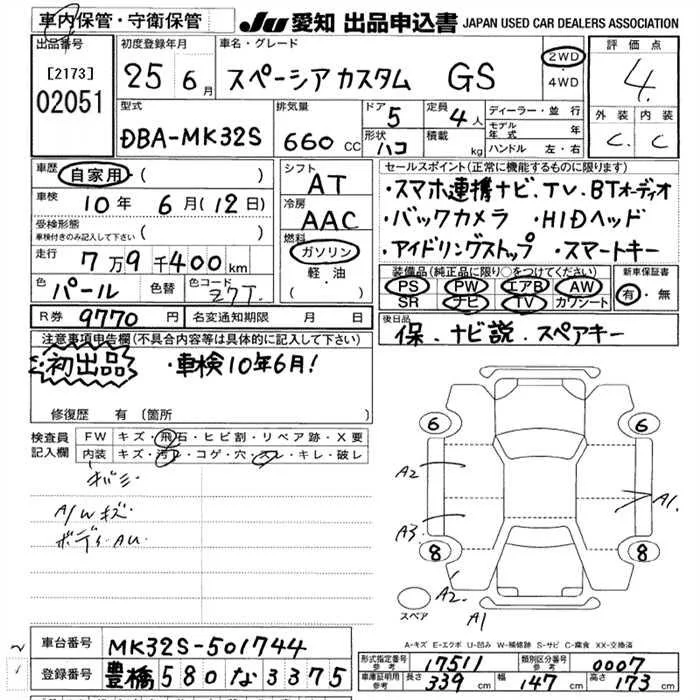 車内保管・守衛保管
JU 愛知 出品申込書 JAPAN USED CAR DEALERS ASSOCIATION
出品番号
[2173]
02051
初度登録年月
25年6月
車名・グレード
スペーシアカスタム GS
2WD
・
4WD
評価点
4
外装 内装
C C
型式
DBA-MK32S
排気量
660 CC
ドア
5
形状
ハコ
定員
4人
積載
kg
ディーラー・並行
モデル年式 年
ハンドル 左・右
車歴
自家用 ( )
車検
10年 6月(12日)
受検形態
車検付きのみ記入して下さい ( )
走行
7万9千400km
色
パール
色替
色コード
Z7T
R券 9770円
名変通知期限 月 日
シフト
AT
冷房
AAC
燃料
ガソリン
・
軽油
( )
セールスポイント(正常に機能するものに限ります)
・スマホ連携ナビ、TV、BTオーディオ
・バックカメラ ・HIDヘッド
・アイドリングストップ ・スマートキー
装備品(純正品に限り○をつけてください)
PS・PW・エアB・AW
SR・ナビ・TV・カワシート
新車保証書
有・無
後日品
保、ナビ説、スペアキー
注意事項申告欄(不具合内容等は具体的に記入して下さい)
初出品 ・車検10年6月!
修復歴 有(箇所 )
検査員
記入欄
FW キズ・飛石・ヒビ割・リペア跡・X要
内装 キズ・汚レ・コゲ・穴・スレ・キレ・破レ
A/Wキズ
ボディAU
6 6
A2
A1
A3
8 8
A2
A1
スペア
A-キズ E-エクボ U-凹み W-補修跡 S-サビ C-腐食 XX-交換済
車台番号 MK32S-501744
登録番号 豊橋580な3375
形式指定番号
参考
17511
類別区分番号
参考
0007
車庫証明用
参考
長さ 339cm 幅 147cm 高さ 173cm